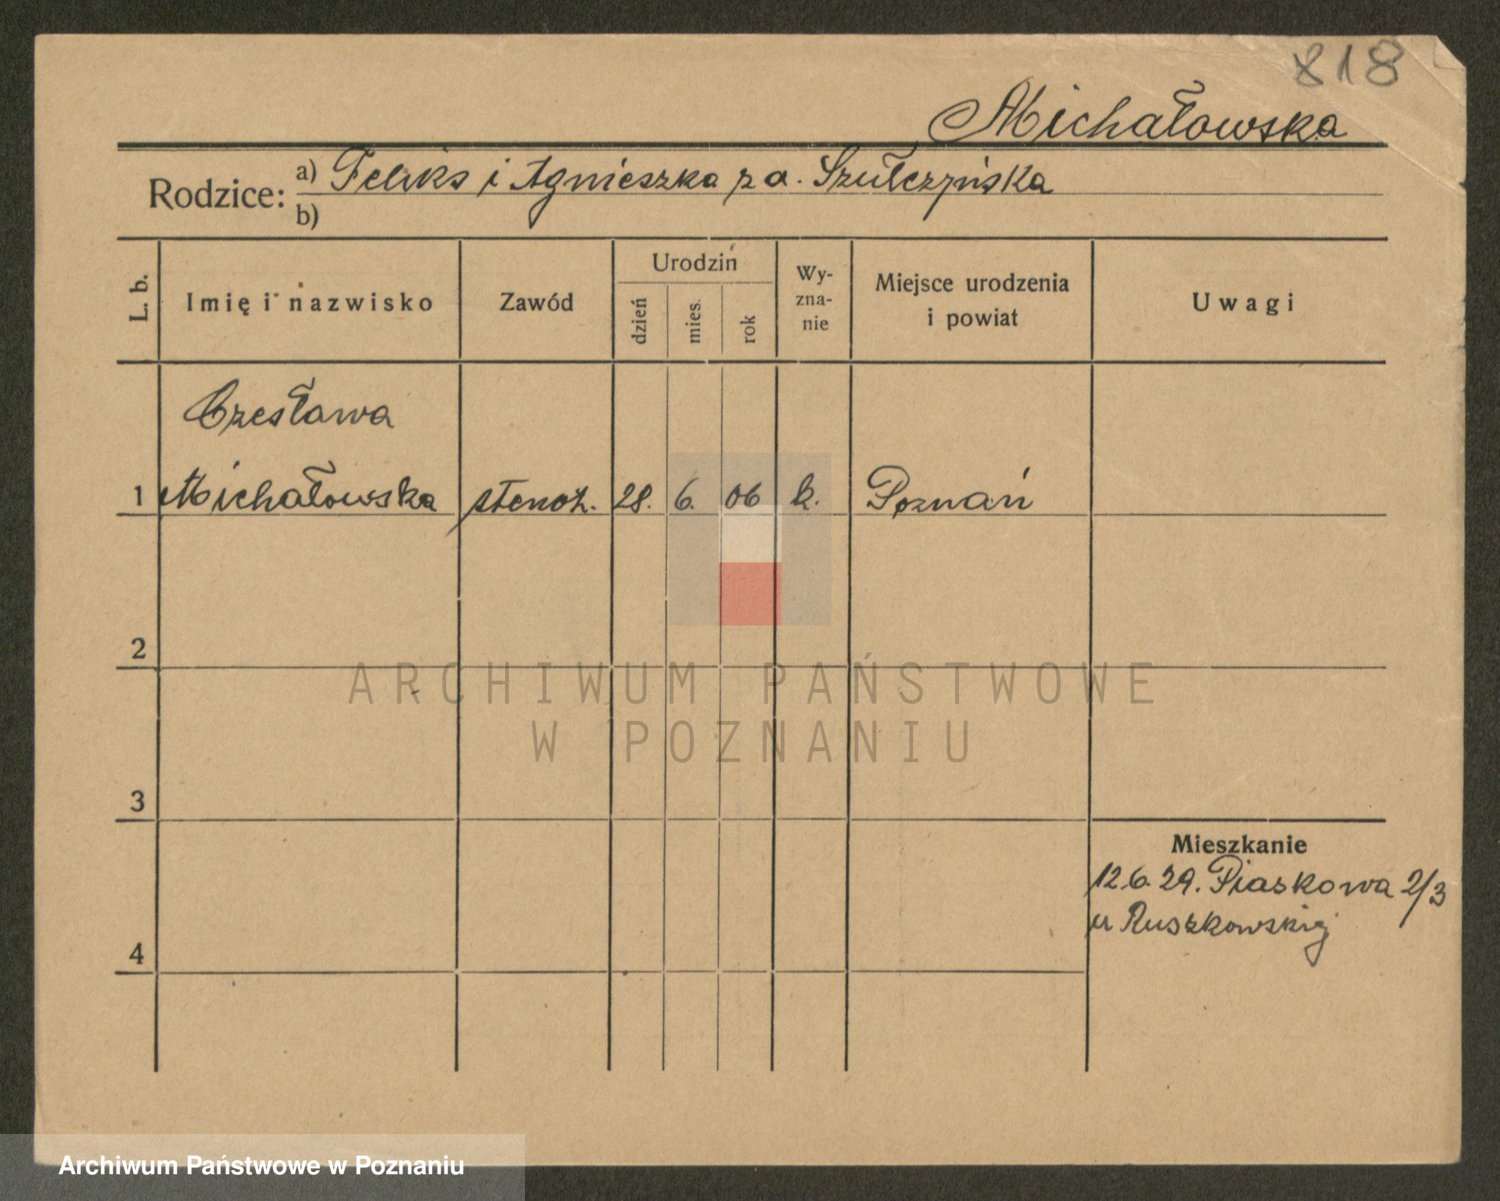 818
Michałowska
Rodzice: a) Feliks i Agnieszka z d. Szułczyńska
b)
L. b. Imię i nazwisko Zawód Urodzin dzień mies. rok Wy-zna-nie Miejsce urodzenia i powiat Uwagi
Czesława
1 Michałowska stenot. 28. 6. 06 k. Poznań
2
ARCHIWUM PAŃSTWOWE
W POZNANIU
3
Mieszkanie
12.6.29. Piaskowa 2/3
u Ruszkowskiej
4
Archiwum Państwowe w Poznaniu